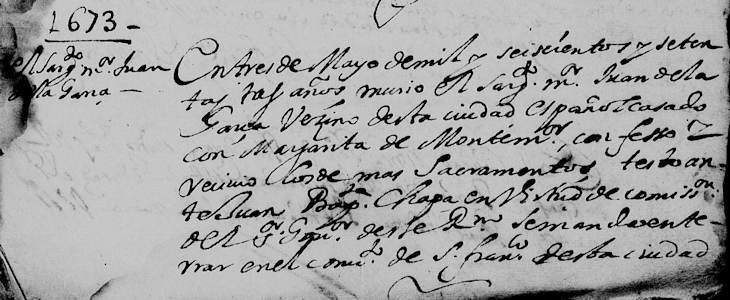 1673
el Sargto mr Juan
de la Garza
En tres de Mayo de mil y seiscientos y seten
ta y tres años murio el Sargto mr Juan de la
Garza Vezino desta ciudad español casado
con Margarita de Montemor, confesso y
recivio los de mas Sacramentos testo an
te Juan Bapta Chapa en Virtud de comisson
del Sr Govor deste Rno se mando ente
rrar en el convto de Sn Franco desta ciudad